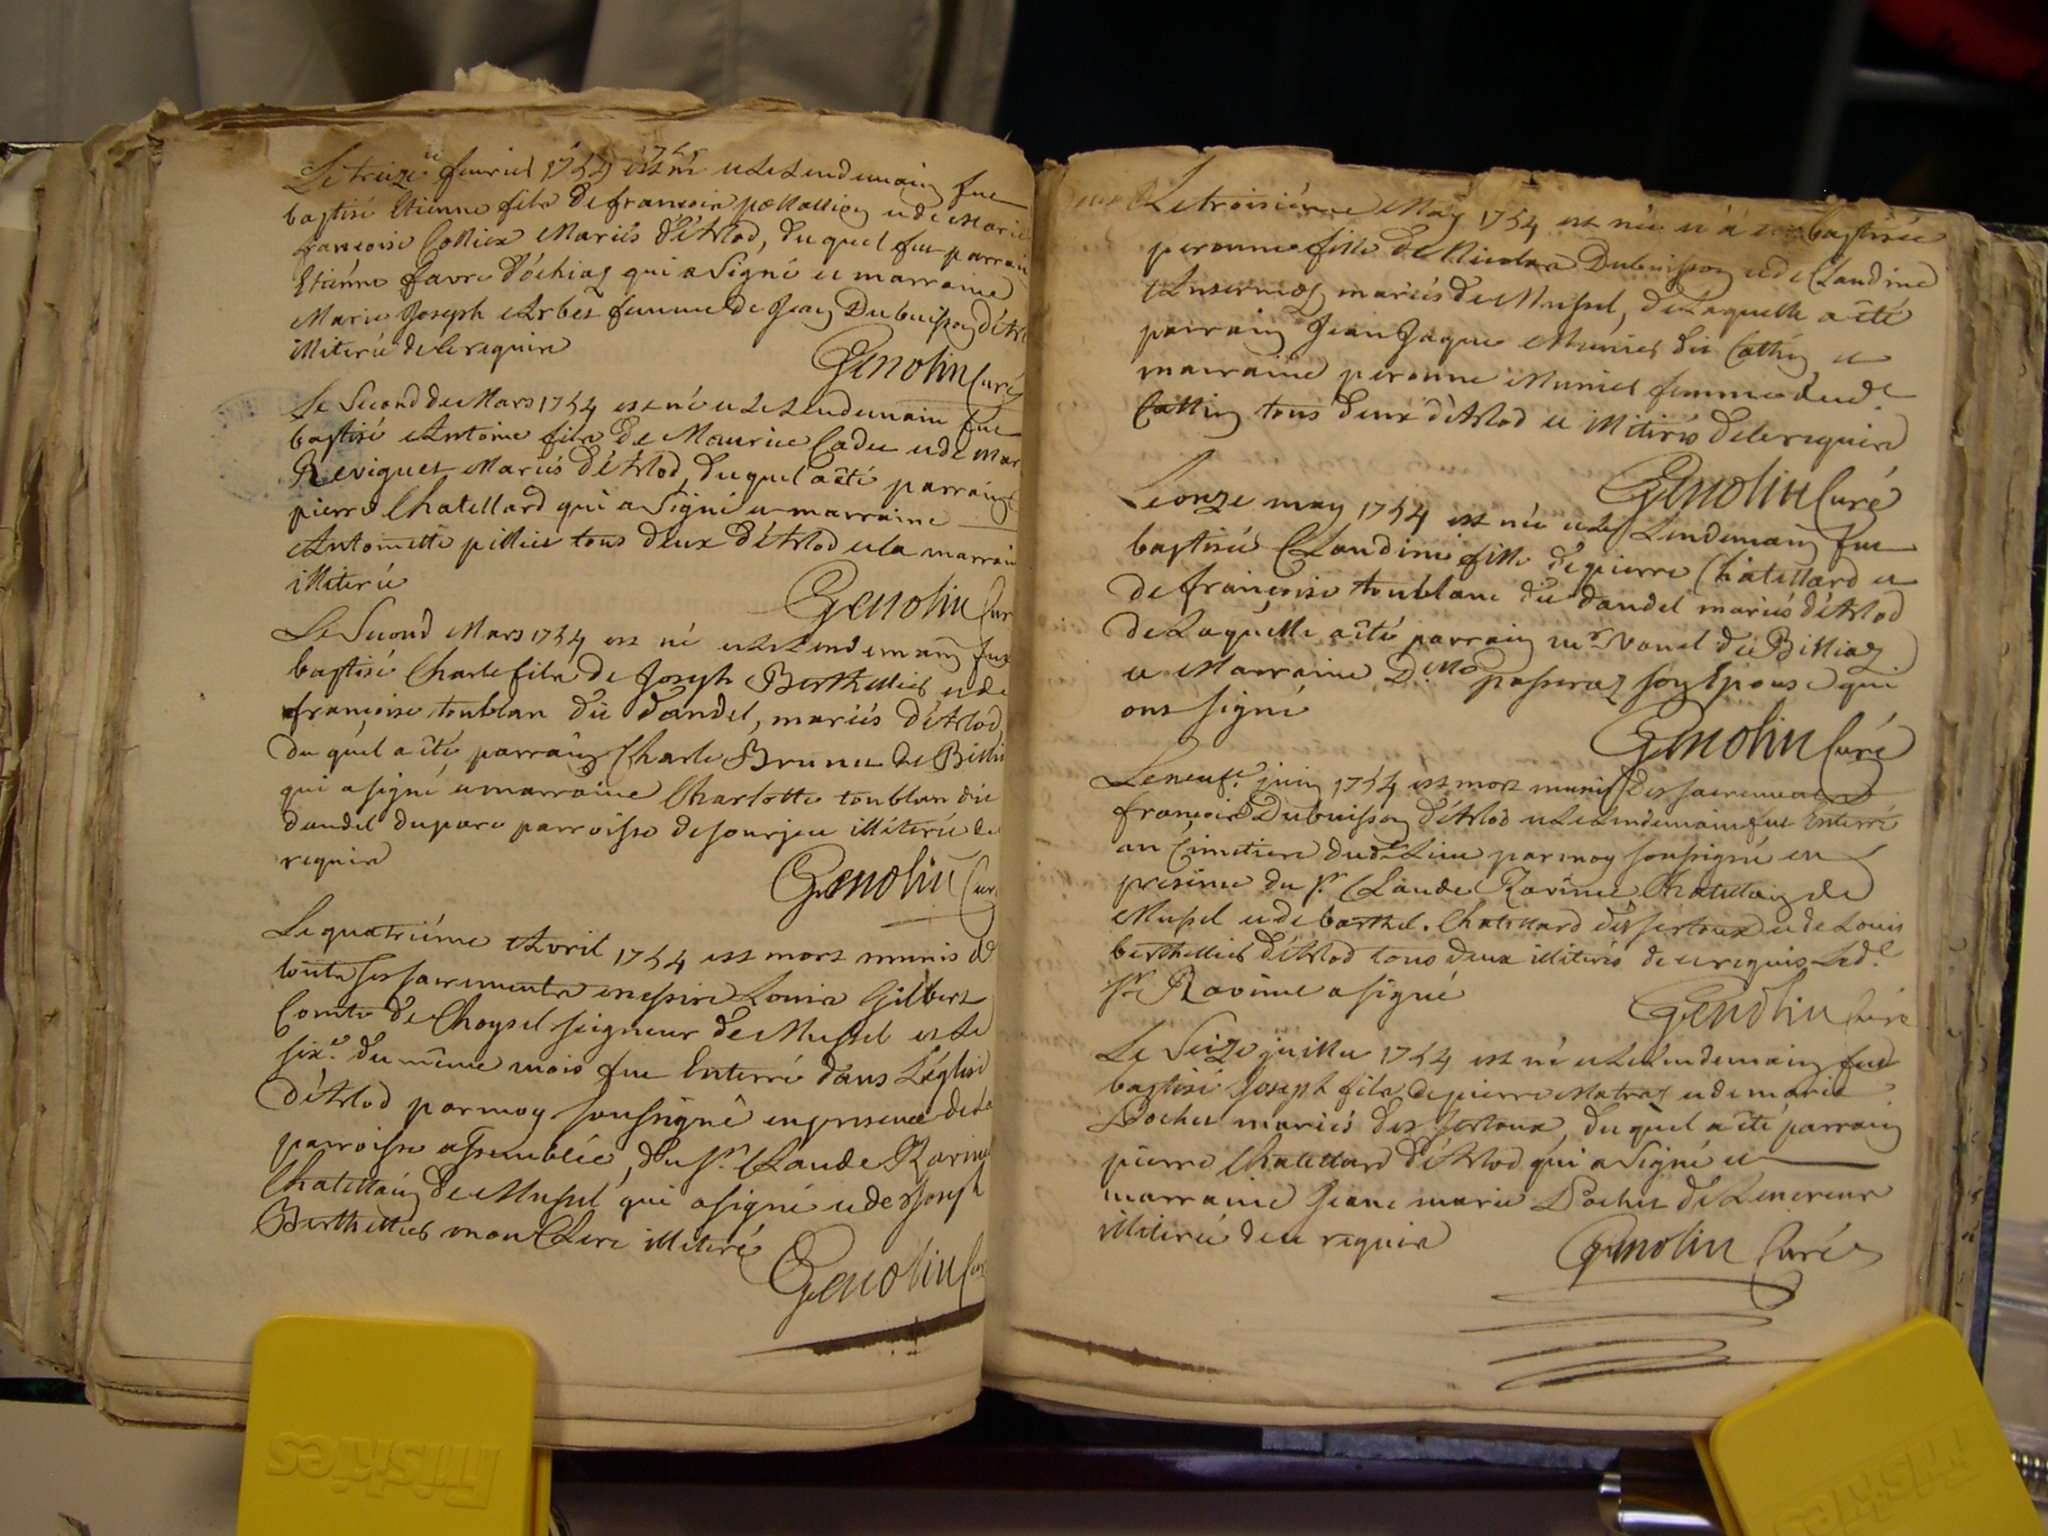 Le treize fevrier 1754 est né et le lendemain fut
baptisé Etienne fils de francois et de Marie
francoise Colliex Mariés d'Arlod, du quel fut parrain
Etiénne favre d'ochiaz qui a signé et marraine
Marie Joseph Arbez femme de Jean Dubuisson d'Arl
illiterée de ce requise
Genolin Curé
Le Second de Mars 1754 est né et le lendemain fut
baptisé Antoine fils de Maurice Cadet et de Mar
Reviguet Mariés d'Arlod, du quel a été parrain
pierre Chatellard qui a signé et marraine
Antoinette pillier tous deux d'Arlod et la marrain
illiterée
Genolin Cur
Le Second Mars 1754 est né et le lendemain fut
baptisé Charle fils de Joseph Berthellier et de
francoise toublan dit dandel, mariés d'Arlod,
du quel a été parrain Charle Brunet de Billia
qui a signé et marraine Charlotte toublan dit
dandel du parc parroisse de sourjeu illiterée de
requise
Genolin Cur
Le quatriéme Avril 1754 est mort munis de
toute ses sacrements messire Louis Gilbert
Comte de Choysel seigneur de Mussel et le
six.e du même mois fut Enterré dans L'église
d'Arlod par moy soussigné en presence de la
parroisse assemblée, du Sr. Claude Ravinet
Chatellain de Mussel qui a signé et de Joseph
Berthellier mon Clerc illiteré
Genolin Cur
Le troisiéme May 1754 est née et a été baptisée
peronne fille de Nicolas Dubuisson et de Claudine
mariés de Mussel, de laquelle a été
parrain Jean Jaque Munier dit Cattin et
marraine peronne Munier femme dud.
Cattin tous deux d'Arlod et illiterés de ce requise
Genolin Curé
Le onze may 1754 est née et le Lendemain fut
baptisée Claudine fille de pierre Chatellard et
de francoise toublanc dit dandel mariés d'Arlod
de Laquelle a été parrain mr Vanel de Billiaz
et Marraine Dlle passeraz son Epouse qui
ont signé
Genolin Curé
Le neuf.e juin 1754 est mort munis des sacrements
francois Dubuisson d'Arlod et le lendemain fut Enterré
au Cimetiere dud. Lieu par moy soussigné en
presence du Sr. Claude Ravinet Chatellain de
Mussel et de barthel. Chatellard des sertoux et de Louis
berthellier d'Arlod tous deux illiterés de ce requis Led.
Sr. Ravinet a signé
Genolin Curé
Le Seize juillet 1754 est né et le Lendemain fut
baptisé Joseph fils de pierre Matraz et de marie
Pochet mariés des sertoux, du quel a été parrain
pierre Chatellard d'Arlod qui a signé et
marraine Jeane marie Pochet
illiterée de ce requise
Genolin Curé
Friskies
Friskies